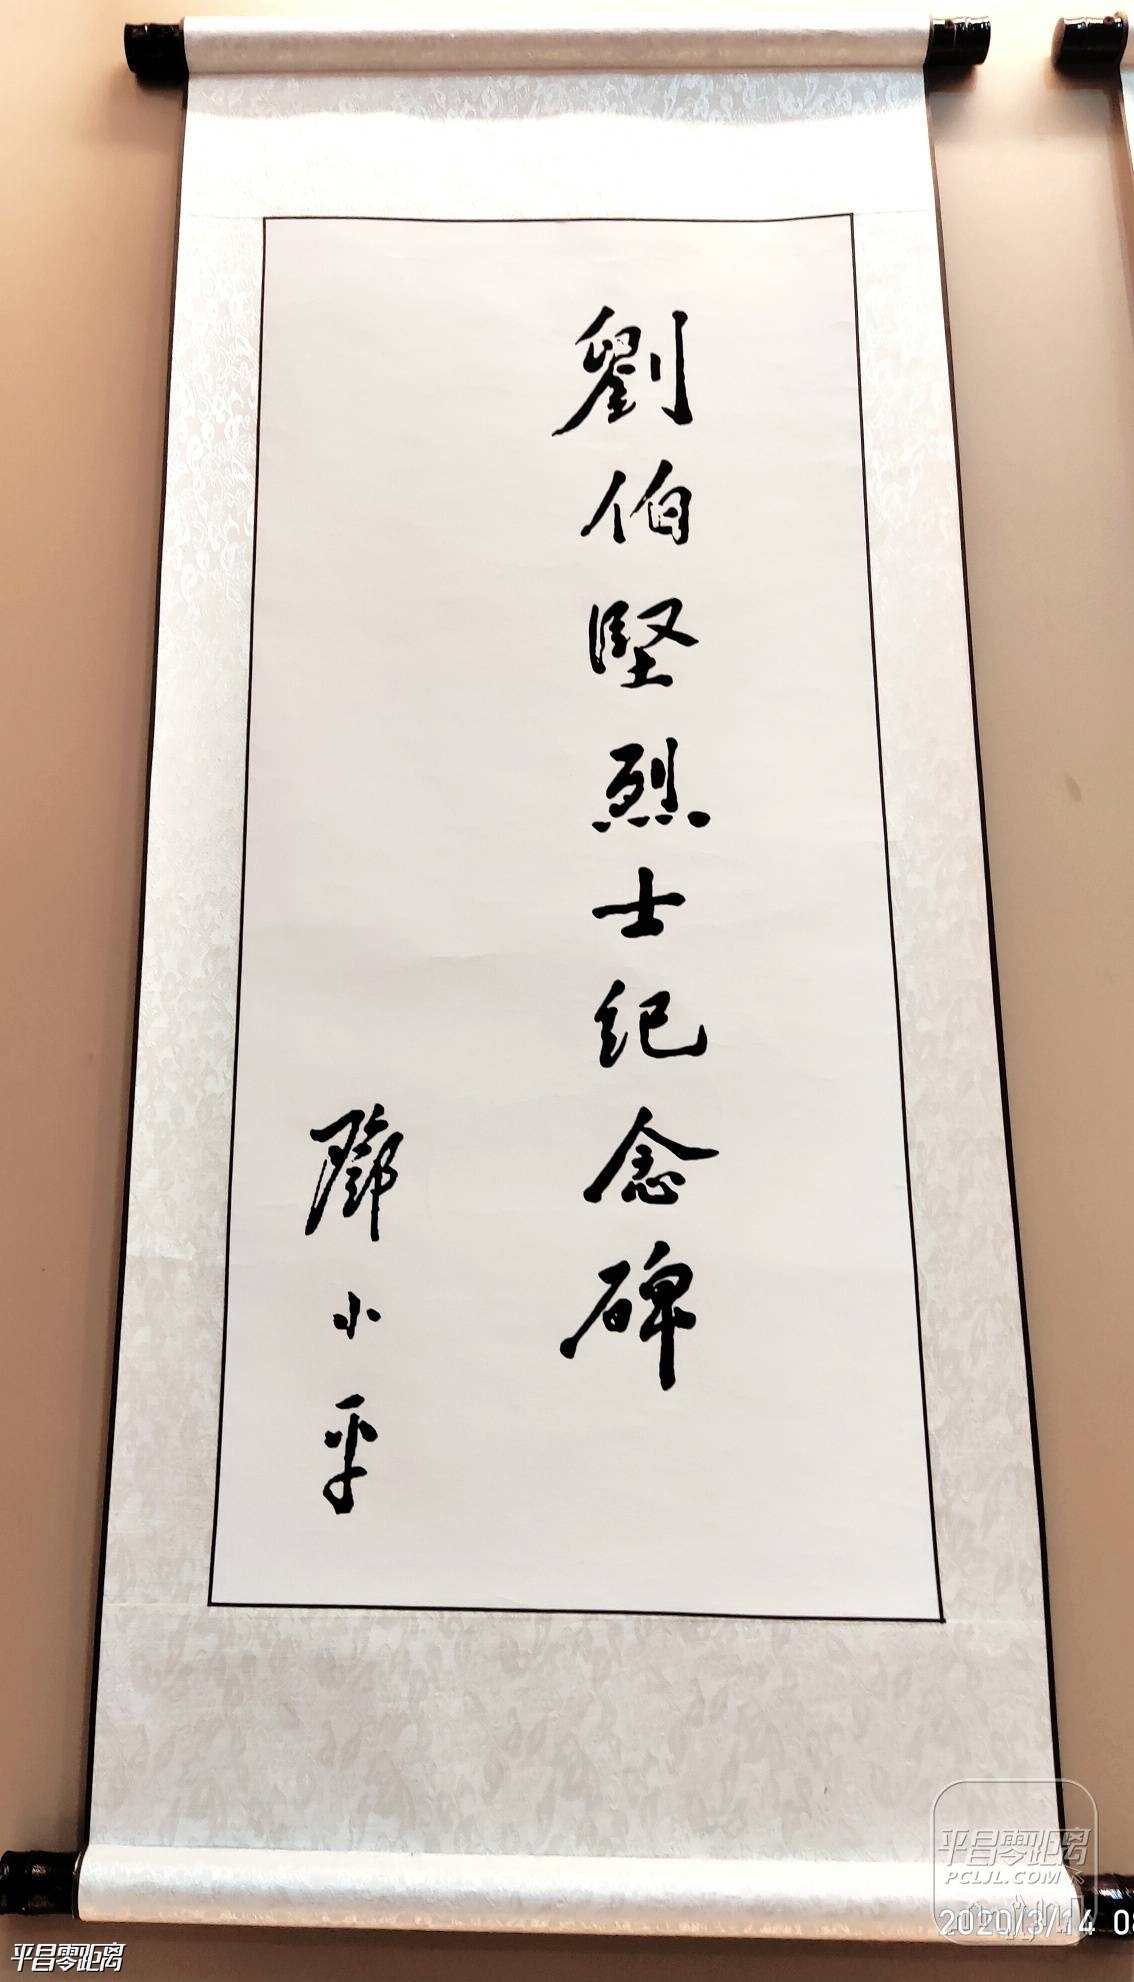 劉伯堅烈士纪念碑
鄧小平
平昌零距离
PCLJL.COM
2020/3/14 08
平昌零距离